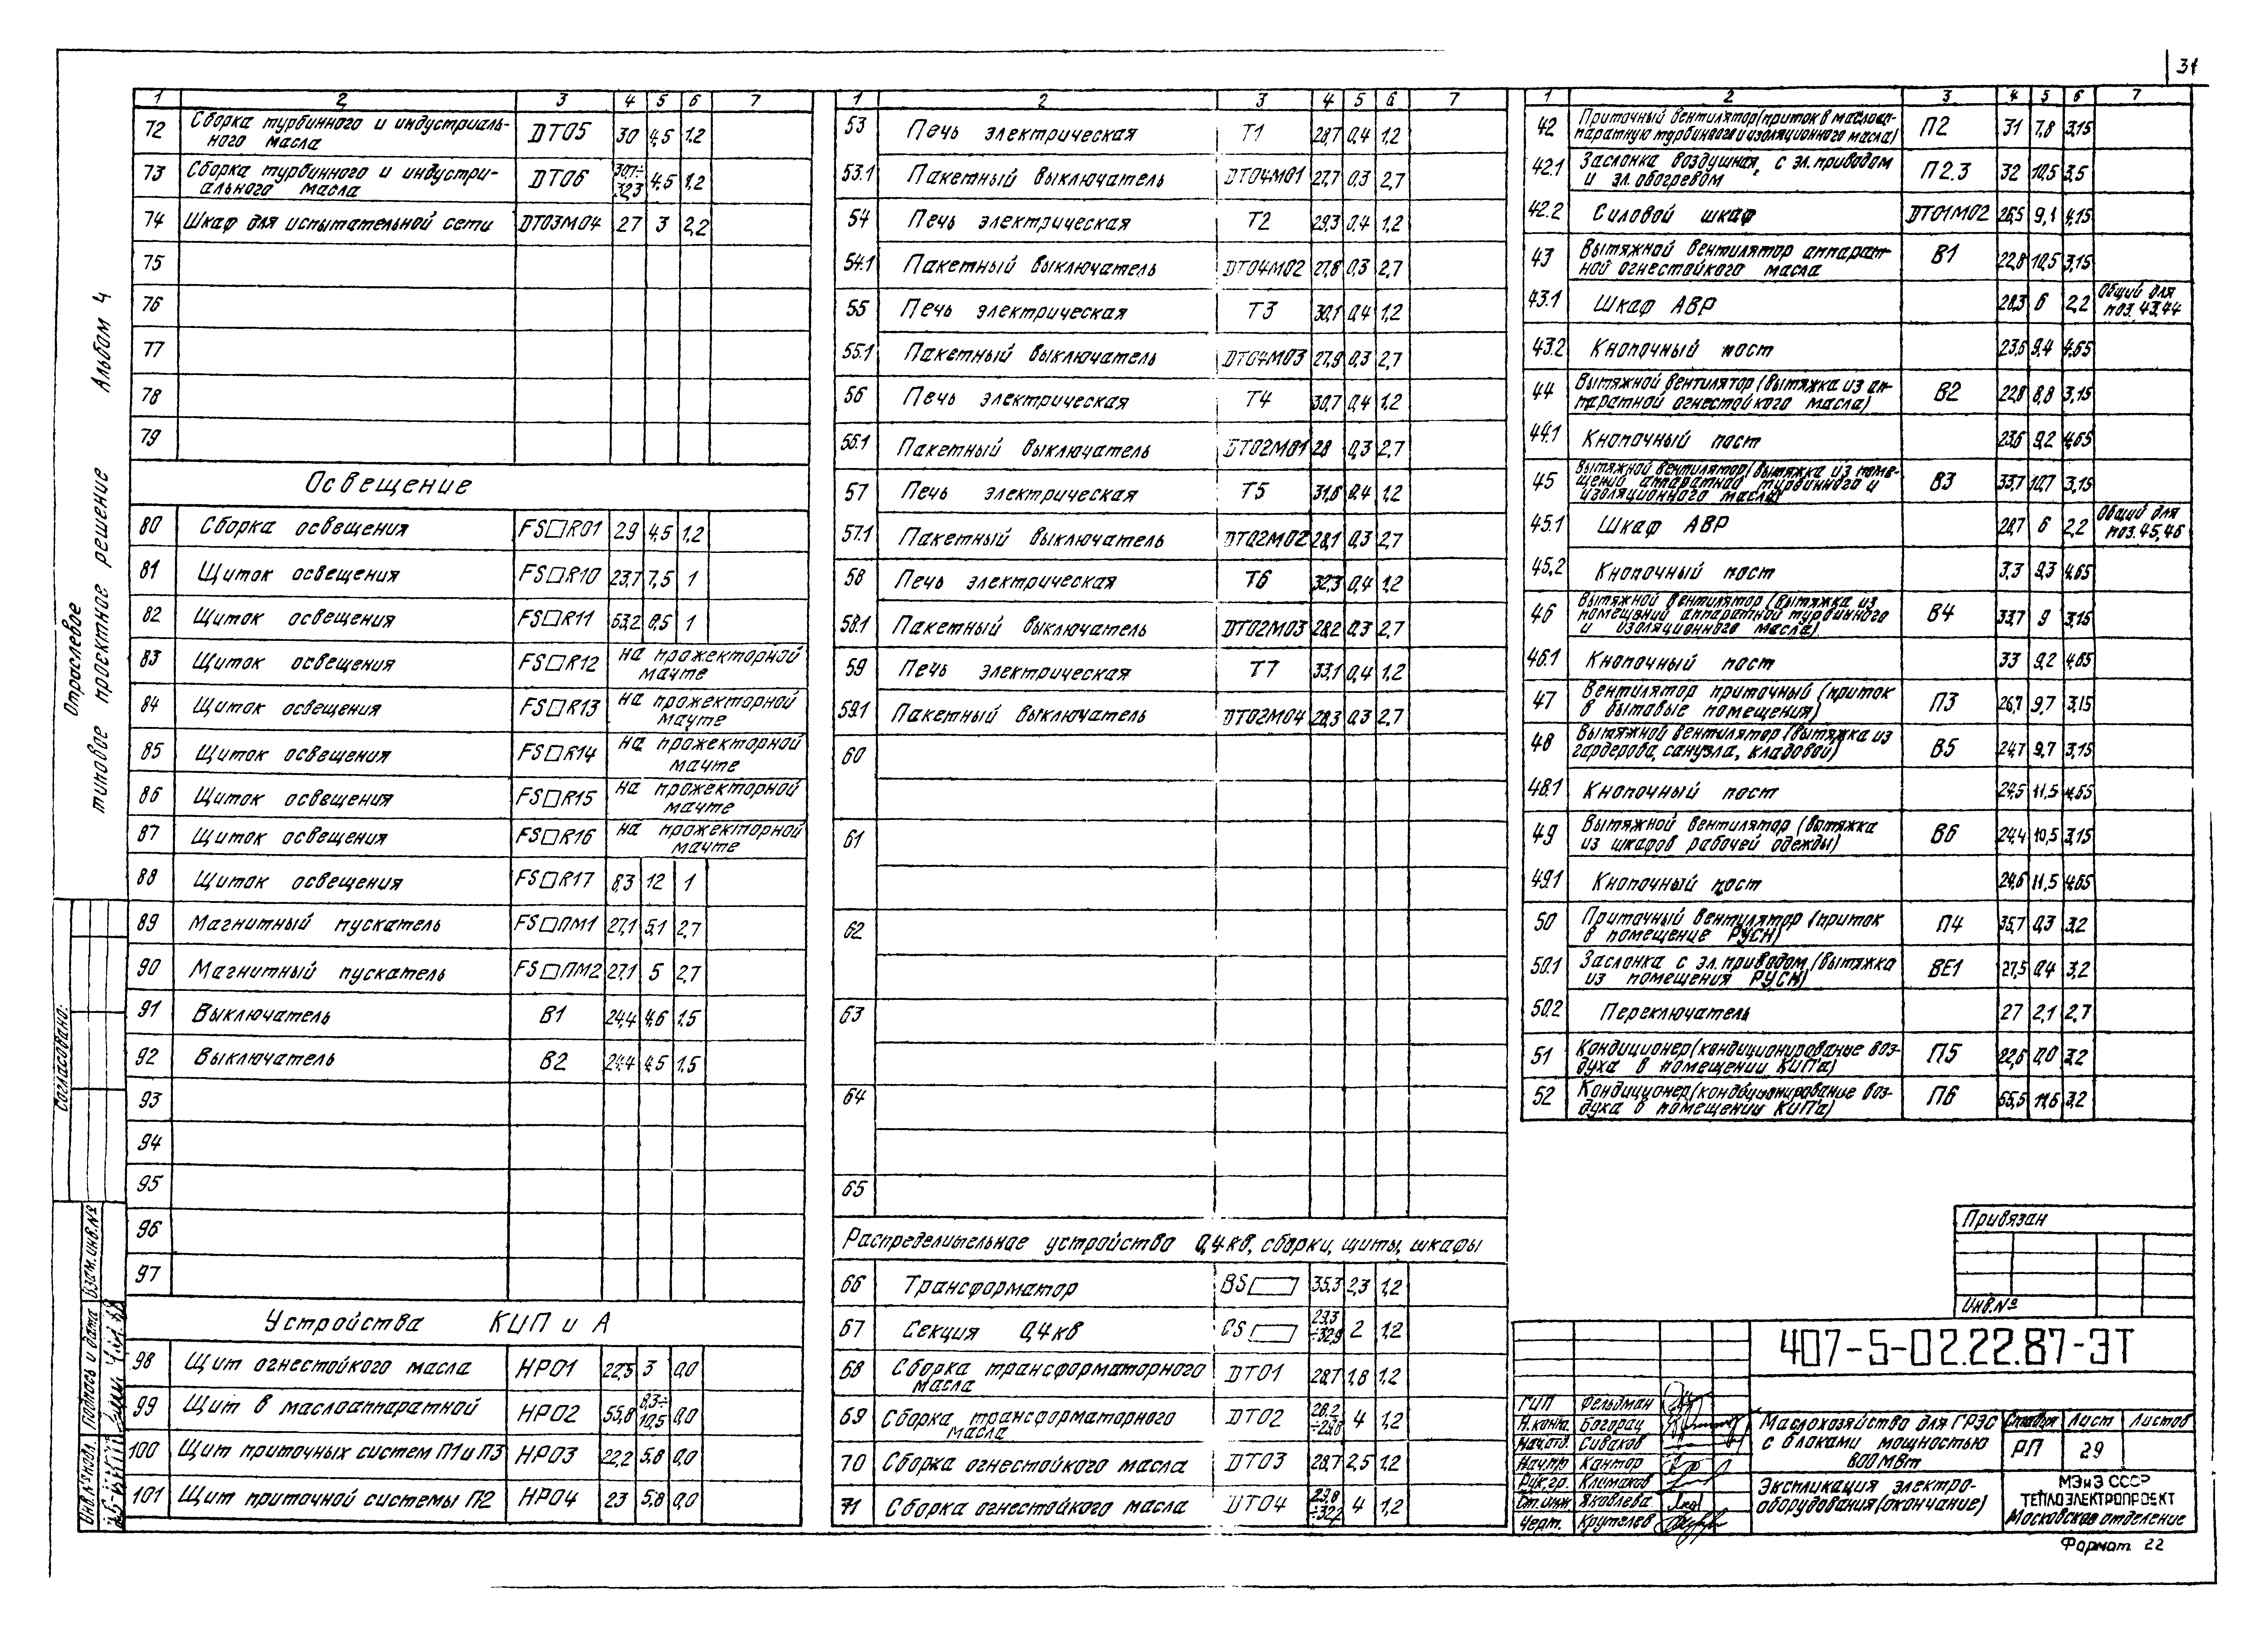 31
Отраслевое
типовое проектное решение Альбом 4
1 2 3 4 5 6 7
72 Сборка турбинного и индустриаль-
ного масла DT05 30 4,5 1,2
73 Сборка турбинного и индустри-
ального масла DT06 30,7÷ 32,3 4,5 1,2
74 Шкаф для испытательной сети DT03M04 27 3 2,2
75
76
77
78
79
Освещение
80 Сборка освещения FS□R01 29 4,5 1,2
81 Щиток освещения FS□R10 23,7 7,5 1
82 Щиток освещения FS□R11 63,2 0,5 1
83 Щиток освещения FS□R12 на прожекторной
мачте
84 Щиток освещения FS□R13 на прожекторной
мачте
85 Щиток освещения FS□R14 на прожекторной
мачте
86 Щиток освещения FS□R15 на прожекторной
мачте
87 Щиток освещения FS□R16 на прожекторной
мачте
88 Щиток освещения FS□R17 8,3 12 1
89 Магнитный пускатель FS□ПМ1 27,1 5,1 2,7
90 Магнитный пускатель FS□ПМ2 27,1 5 2,7
91 Выключатель В1 24,4 4,6 1,5
92 Выключатель В2 24,4 4,5 1,5
93
94
95
96
97
Устройства КИП и А
98 Щит огнестойкого масла HP01 22,5 3 0,0
99 Щит в маслоаппаратной HP02 55,8 8,3÷ 10,5 0,0
100 Щит приточных систем П1 и П3 HP03 22,2 5,8 0,0
101 Щит приточной системы П2 HP04 23 5,8 0,0
1 2 3 4 5 6 7
53 Печь электрическая Т1 28,7 0,4 1,2
53.1 Пакетный выключатель DT04M01 27,7 0,3 2,7
54 Печь электрическая Т2 29,3 0,4 1,2
54.1 Пакетный выключатель DT04M02 27,8 0,3 2,7
55 Печь электрическая Т3 30,1 0,4 1,2
55.1 Пакетный выключатель DT04M03 27,9 0,3 2,7
56 Печь электрическая Т4 30,7 0,4 1,2
56.1 Пакетный выключатель DT02M01 28 0,3 2,7
57 Печь электрическая Т5 31,6 0,4 1,2
57.1 Пакетный выключатель DT02M02 28,1 0,3 2,7
58 Печь электрическая Т6 32,3 0,4 1,2
58.1 Пакетный выключатель DT02M03 28,2 0,3 2,7
59 Печь электрическая Т7 33,1 0,4 1,2
59.1 Пакетный выключатель DT02M04 28,3 0,3 2,7
60
61
62
63
64
65
Распределительное устройство 0,4кв, сборки, щиты, шкафы
66 Трансформатор BS□ 35,3 2,3 1,2
67 Секция 0,4кв CS□ 29,3 ÷32,9 2 1,2
68 Сборка трансформаторного
масла DT01 28,7 1,8 1,2
69 Сборка трансформаторного
масла DT02 28,2 ÷29,8 4 1,2
70 Сборка огнестойкого масла DT03 28,7 2,5 1,2
71 Сборка огнестойкого масла DT04 29,8 4 1,2
1 2 3 4 5 6 7
42 Приточный вентилятор(приток в маслоап-
паратную турбинного и изоляционного масла) П2 31 7,8 3,15
42.1 Заслонка воздушная, с эл.приводом
и эл.обогревом П2.3 32 10,5 3,5
42.2 Силовой шкаф DT01M02 26,5 9,1 4,15
43 Вытяжной вентилятор аппарат-
ной огнестойкого масла В1 22,8 10,5 3,15
43.1 Шкаф АВР 28,3 6 2,2 Общий для
поз.43,44
43.2 Кнопочный пост 23,6 9,4 4,65
44 Вытяжной вентилятор (вытяжка из ап-
паратной огнестойкого масла) В2 22,8 8,8 3,15
44.1 Кнопочный пост 23,6 9,2 4,65
45 Вытяжной вентилятор(вытяжка из поме-
щений аппаратной турбинного и
изоляционного масла) В3 33,7 10,7 3,15
45.1 Шкаф АВР 28,7 6 2,2 Общий для
поз.45,46
45.2 Кнопочный пост 3,3 9,3 4,65
46 Вытяжной вентилятор (вытяжка из
помещений аппаратной турбинного
и изоляционного масла) В4 33,7 9 3,15
46.1 Кнопочный пост 33 9,2 4,65
47 Вентилятор приточный (приток
в бытовые помещения) П3 26,7 9,7 3,15
48 Вытяжной вентилятор (вытяжка из
гардероба, санузла, кладовой) В5 24,7 9,7 3,15
48.1 Кнопочный пост 24,5 11,5 4,65
49 Вытяжной вентилятор (вытяжка
из шкафов рабочей одежды) В6 24,4 10,5 3,15
49.1 Кнопочный пост 24,6 11,5 4,65
50 Приточный вентилятор (приток
в помещение РУСН) П4 35,7 0,3 3,2
50.1 Заслонка с эл.приводом (вытяжка
из помещения РУСН) ВЕ1 27,5 0,4 3,2
50.2 Переключатель 27 2,1 2,7
51 Кондиционер(кондиционирование воз-
духа в помещении КИП'а) П5 22,6 0,0 3,2
52 Кондиционер(кондиционирование воз-
духа в помещении КИП'а) П6 55,5 11,6 3,2
Согласовано:
Инв.№подл. Подпись и дата Взам.инв.№
Привязан
Инв.№
407-5-02.22.87-ЭТ
ГИП Фельдман
Н.конт. Богорад
Нач.отд. Сиваков
Нач.пр Кантор
Рук.гр. Климаков
Ст.инж Яковлева
Черт. Крутелев
Маслохозяйство для ГРЭС
с блоками мощностью
800МВт
Стадия Лист Листов
РП 29
Экспликация электро-
оборудования(окончание)
МЭиЭ СССР
ТЕПЛОЭЛЕКТРОПРОЕКТ
Московское отделение
Формат 22